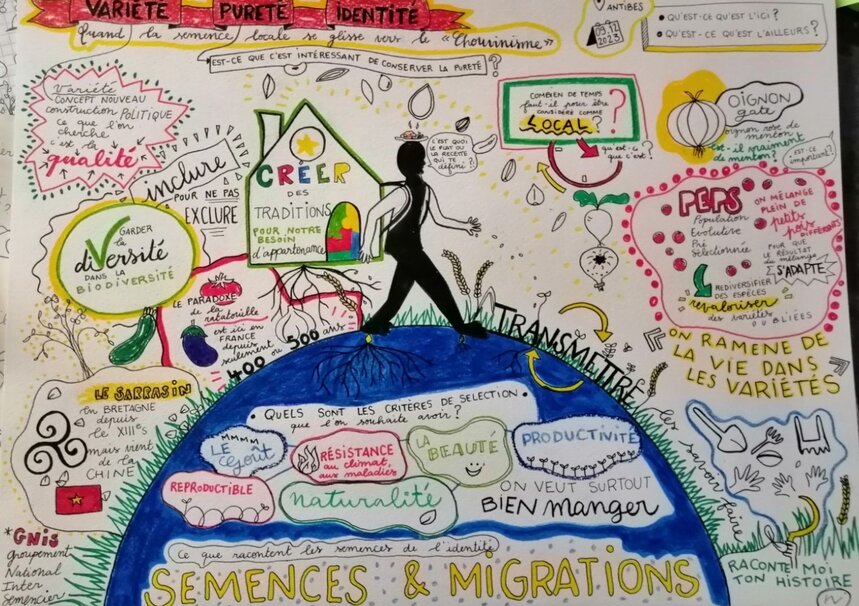 VARIÉTÉ PURETÉ IDENTITÉ
Quand la semence locale se glisse vers le "Chourinisme"
EST-CE QUE C'EST INTÉRESSANT DE CONSERVER LA PURETÉ?
ANTIBES
09.12
2023
• QU'EST-CE QU'EST L'ICI?
• QU'EST-CE QU'EST L'AILLEURS?
Variété
CONCEPT NOUVEAU
construction POLITIQUE
ce que l'on
cherche
c'est la
qualité
inclure
POUR NE PAS
EXCLURE
GARDER
la
diVersité
DANS LA
BIODIVERSITÉ
CRÉER
DES
TRADITIONS
POUR NOTRE
BESOIN
d'appartenance
C'EST QUOI
LE PLAT OU
LA RECETTE
QUI TE
définé?
COMBIEN DE TEMPS
faut-il pour être
CONSIDÉRÉ COMME
LOCAL?
qu'est-ce
que c'est?
OIGNON
gate
oignon rose de
menton
est-il vraiment
de menton?
EST-CE
important?
PEPS
Population
Evolutive
Pré
Sélectionnée
ON MÉLANGE
PLEIN DE
petits
pois
DIFFÉRENTS
POUR QUE
LE RÉSULTAT
du mélange
S'ADAPTE
REDIVERSIFIER
DES ESPÈCES
revaloriser
des variétés
OUBLIÉES
ON RAMENE DE
LA VIE DANS
LES VARIÉTÉS
LE PARADOXE
de la
ratatouille
est ici en
FRANCE
depuis
seulement
400 ou 500 ans
TRANSMETTRE
les savoir faire
RACONTE MOI
TON HISTOIRE
LE SARRASIN
en BRETAGNE
depuis
le XIIIes
mais vient
de la
CHINE
*GNIS
Groupement
National
Inter
Semencier
• QUELS SONT LES CRITÈRES DE SELECTION •
que l'on souhaite avoir?
MMMM
LE GOÛT
RÉSISTANCE
au climat,
aux maladies
LA
BEAUTÉ
PRODUCTIVITÉ
REPRODUCTIBLE
naturalité
ON VEUT SURTOUT
BIEN manger
Ce que racontent les semences de l'identité
SEMENCES & MIGRATIONS